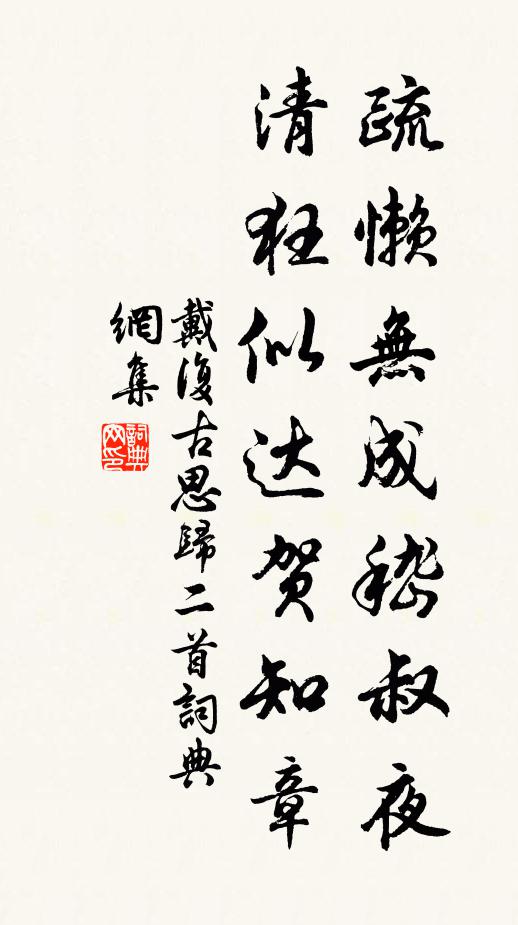 疏懒無成嵇叔夜
清狂似达贺知章
戴復古思歸二首詞典
網集
詞典网印